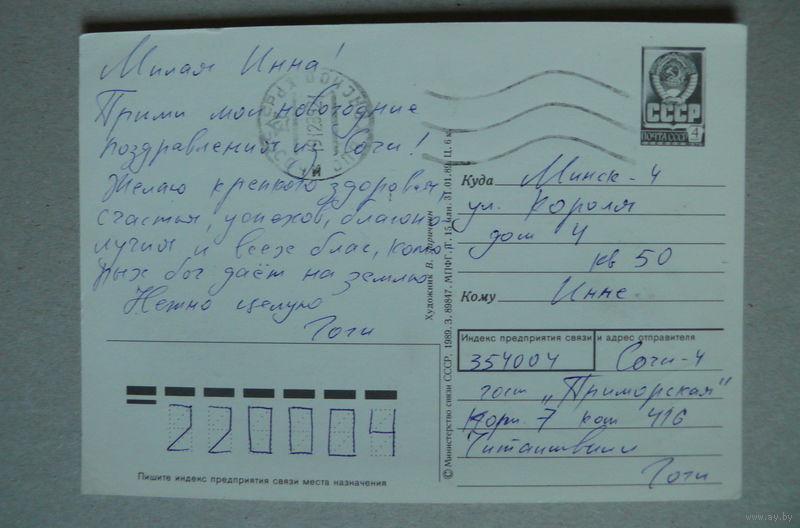 Милая Инна!
Прими мои новогодние
поздравления из Сочи!
Желаю крепкого здоровья
счастья, успехов, благопо-
лучия и всех благ, кото
рых бог даёт на землю
Нежно целую
Гоги
220004
Пишите индекс предприятия связи места назначения
© Министерство связи СССР, 1989. З. 89847. МПФГ. П. 15 млн. 31.01.89. Ц. 6 к.
Художник В.
СССР
ПОЧТА СССР 4
Куда Минск-4
ул. Короля
дом 4
кв 50
Кому Инне
Индекс предприятия связи и адрес отправителя
354004 Сочи-4
гост „Приморская"
Корп. 7 ком 416
Гоги
www.ay.by